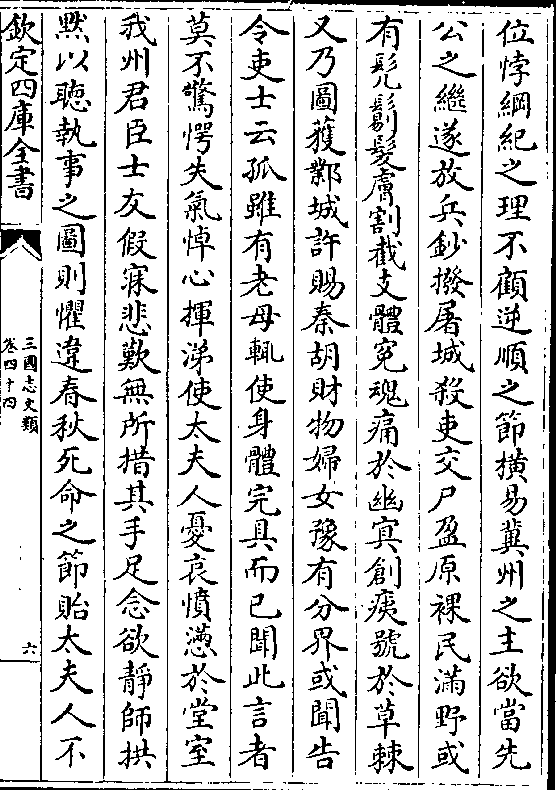 位悖綱紀之理不顧逆順之節橫易冀州之主欲當先
公之繼遂放兵鈔撥屠城殺吏交尸盈原裸民滿野或
有髠鬄髮膚割截支體冤魂痛於幽冥創痍號於草棘
又乃圖獲鄴城許賜秦胡財物婦女豫有分界或聞告
令吏士云孤雖有老母輒使身體完具而已聞此言者
莫不驚愕失氣悼心揮涕使太夫人憂哀憤懣於堂室
我州君臣士友假寐悲歎無所措其手足念欲靜師拱
黙以聽執事之圖則懼違春秋死命之節貽太夫人不
欽定四庫全書
三國志文類
卷四十四
六